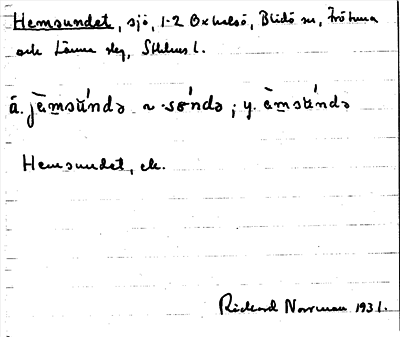 Hemsundet, sjö, 1-2 Oxhalsö, Blidö sn, Frötuna
och Länna slg, Sthlms l.
ä. jä̀msúndə ~ -sǿndə; y. ä̀msúndə
Hemsundet, ek.
Rickard Norrman 1931.